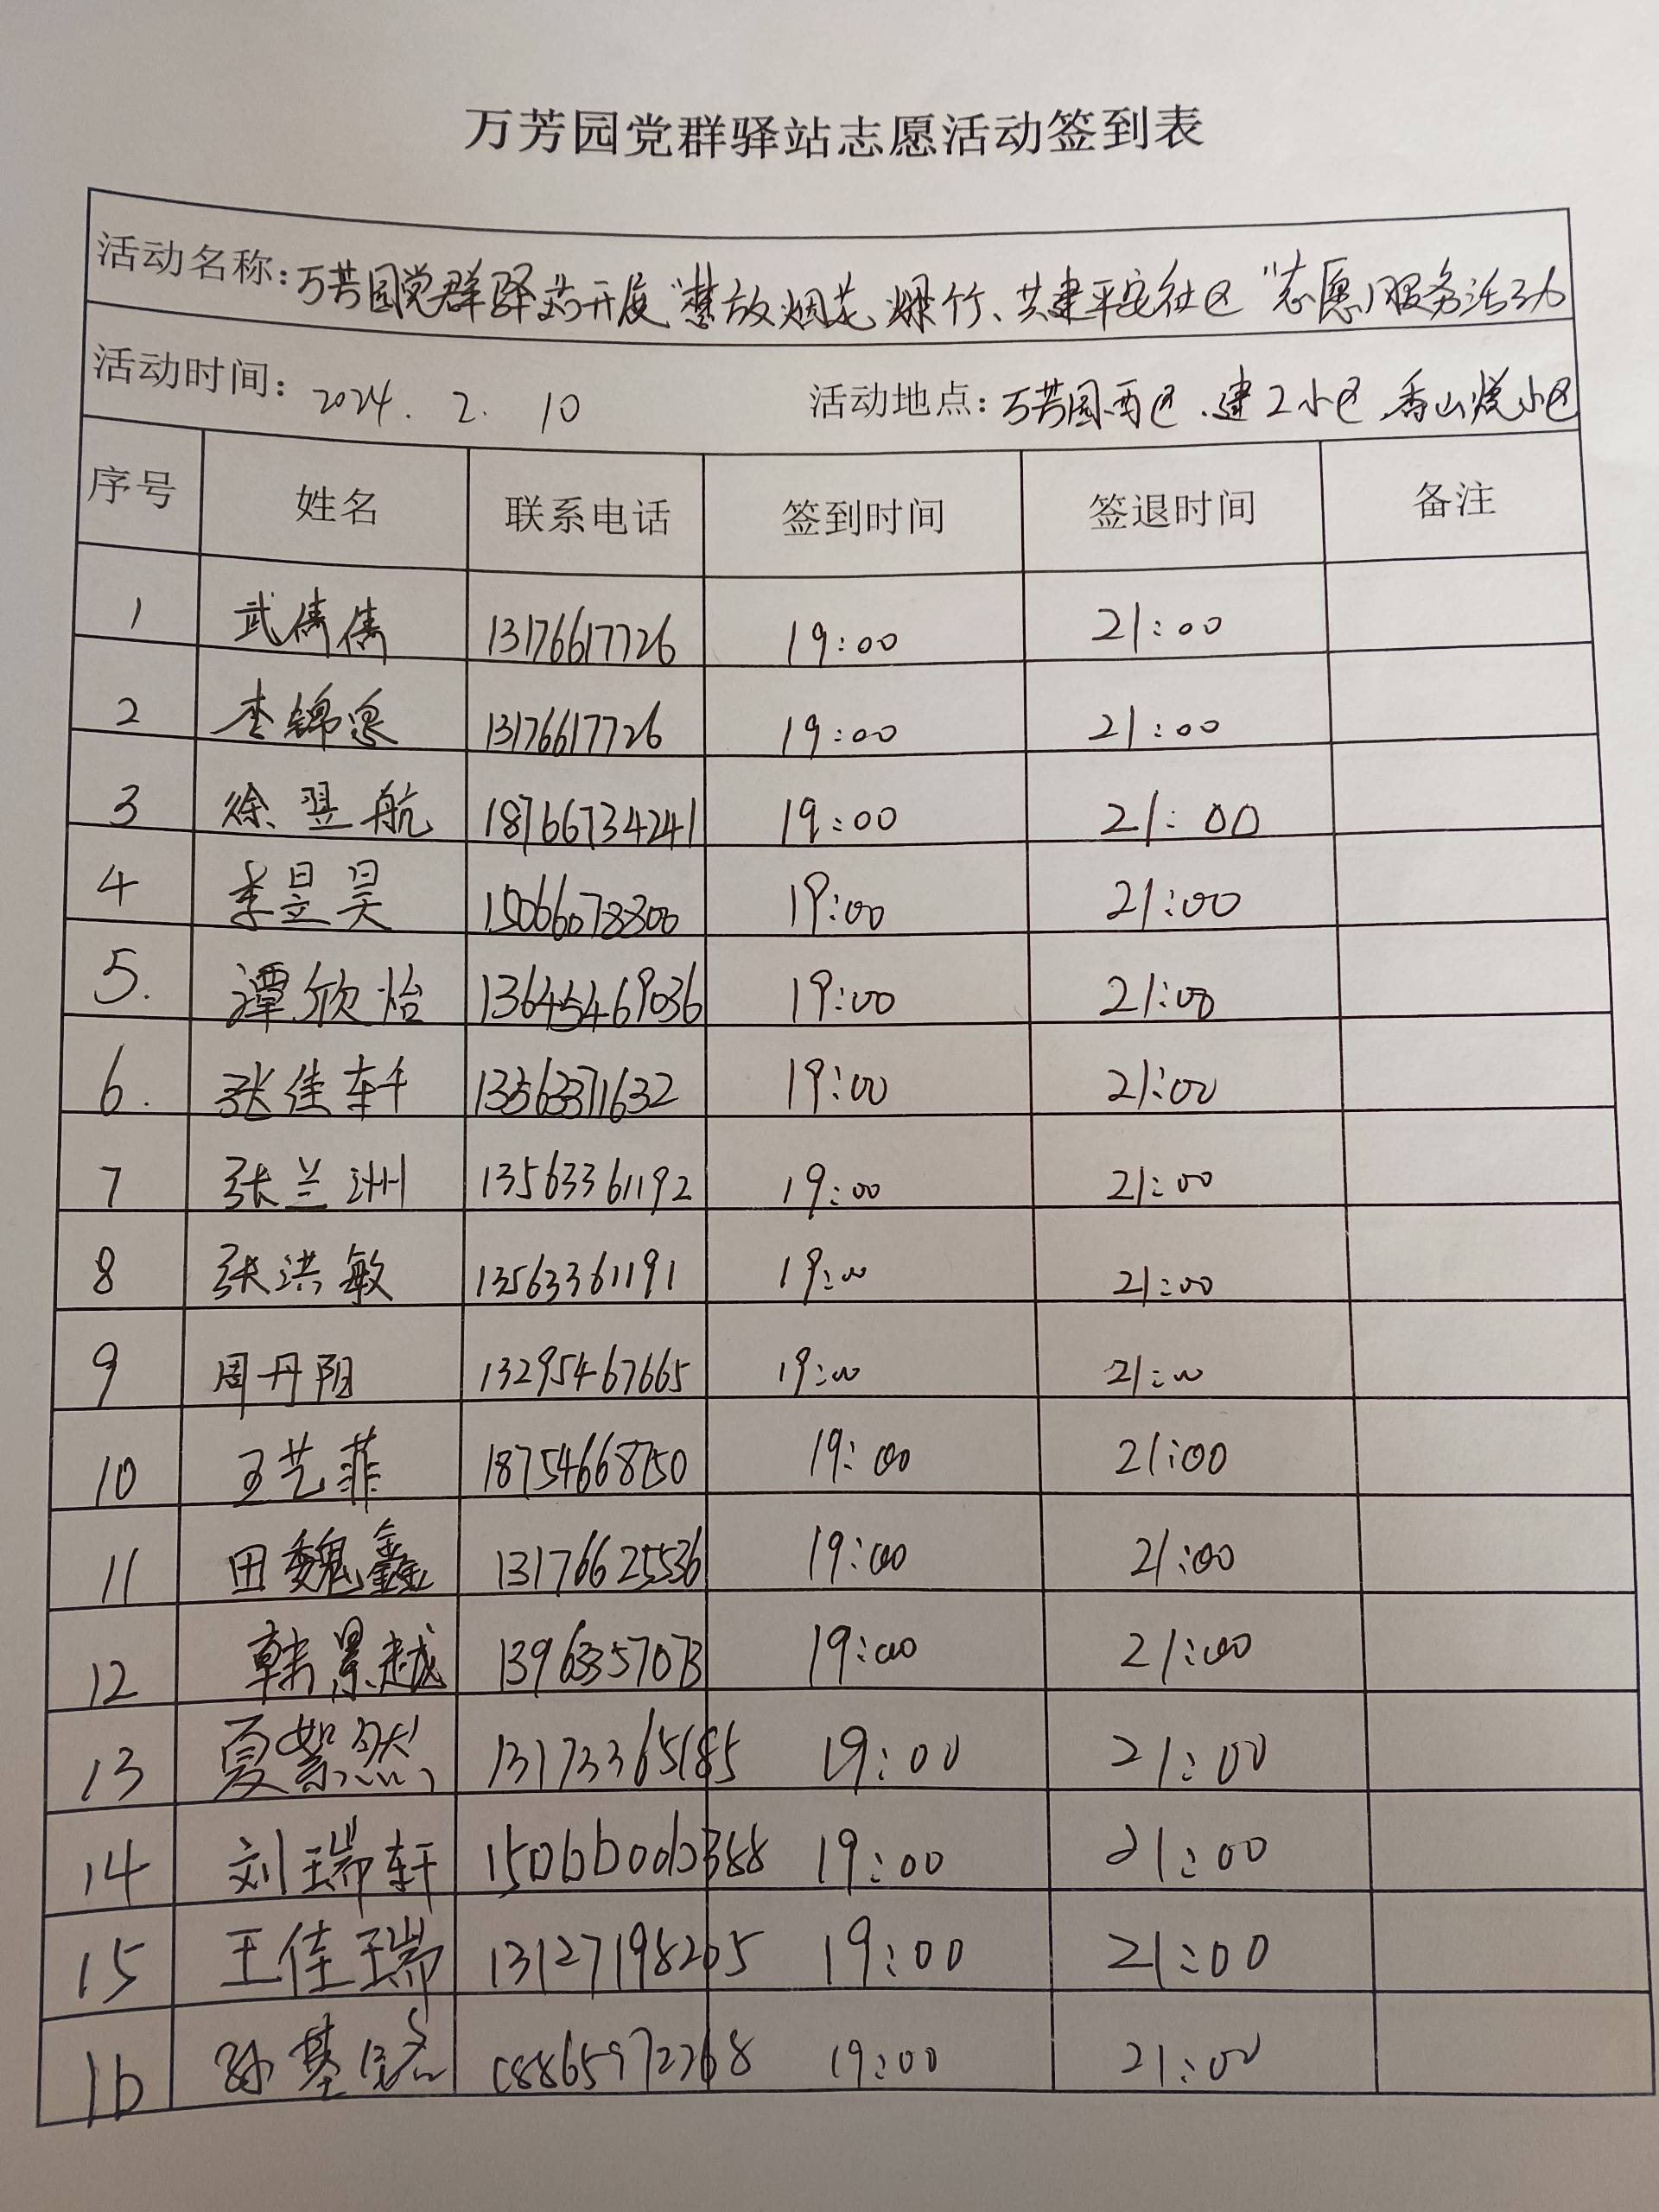 万芳园党群驿站志愿活动签到表
活动名称：万芳园党群驿站开展“禁放烟花爆竹、共建平安社区”志愿服务活动
活动时间：2024.2.10 活动地点：万芳园西区、建工小区 香山悦小区
序号 姓名 联系电话 签到时间 签退时间 备注
1 武倩倩 13176617726 19:00 21:00
2 李锦 13176617726 19:00 21:00
3 徐翌航 18766734241 19:00 21:00
4 李昱昊 15066078800 19:00 21:00
5. 谭欣怡 13645469036 19:00 21:00
6. 张佳轩 13563371632 19:00 21:00
7 张兰洲 13563361192 19:00 21:00
8 张洪敏 13563361191 19:00 21:00
9 周丹阳 13295467665 19:00 21:00
10 王艺菲 18754668750 19:00 21:00
11 田魏鑫 13176625536 19:00 21:00
12 韩景越 19:00 21:00
13 夏絮然 13173365185 19:00 21:00
14 刘瑞轩 15066006388 19:00 21:00
15 王佳瑞 13127198205 19:00 21:00
16 孙基 18865972268 19:00 21:00